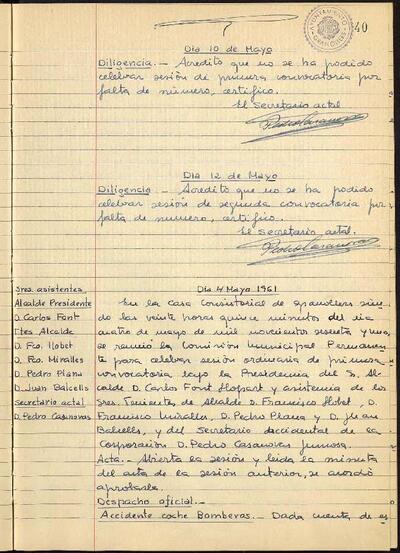 AYUNTAMIENTO
GRANOLLERS
40
Dia 10 de Mayo
Diligencia.- Acredito que no se ha podido
celebrar sesión de primera convocatoria por
falta de número, certifico.
El Secretario actal
Pedro Casanovas
Dia 12 de Mayo
Diligencia.- Acredito que no se ha podido
celebrar sesión de segunda convocatoria por
falta de numero, certifico.
El Secretario actal.
Pedro Casanovas
Sres. asistentes
Alcalde Presidente
D. Carlos Font
Ttes. Alcalde
D. Fco. Llobet
D. Fco. Miralles
D. Pedro Plana
D. Juan Balcells
Secretario actal
D. Pedro Casanovas
Dia 4 Mayo 1961
En la Casa Consistorial de Granollers sien-
do las veinte horas quince minutos del dia
cuatro de mayo de mil novecientos sesenta y uno,
se reunió la Comisión Municipal Permanen-
te para celebrar sesión ordinaria de primera
convocatoria bajo la Presidencia del S. Al-
calde D. Carlos Font Llopart y asistencia de los
Sres. Tenientes de Alcalde D. Francisco Llobet, D.
Francisco Miralles, D. Pedro Plana y D. Juan
Balcells, y del Secretario accidental de la
Corporación D. Pedro Casanovas
Acta.- Abierta la sesión y leida la minuta
del acta de la sesión anterior, se acordó
aprobarla.
Despacho oficial.-
Accidente coche Bomberos.- Dada cuenta de es